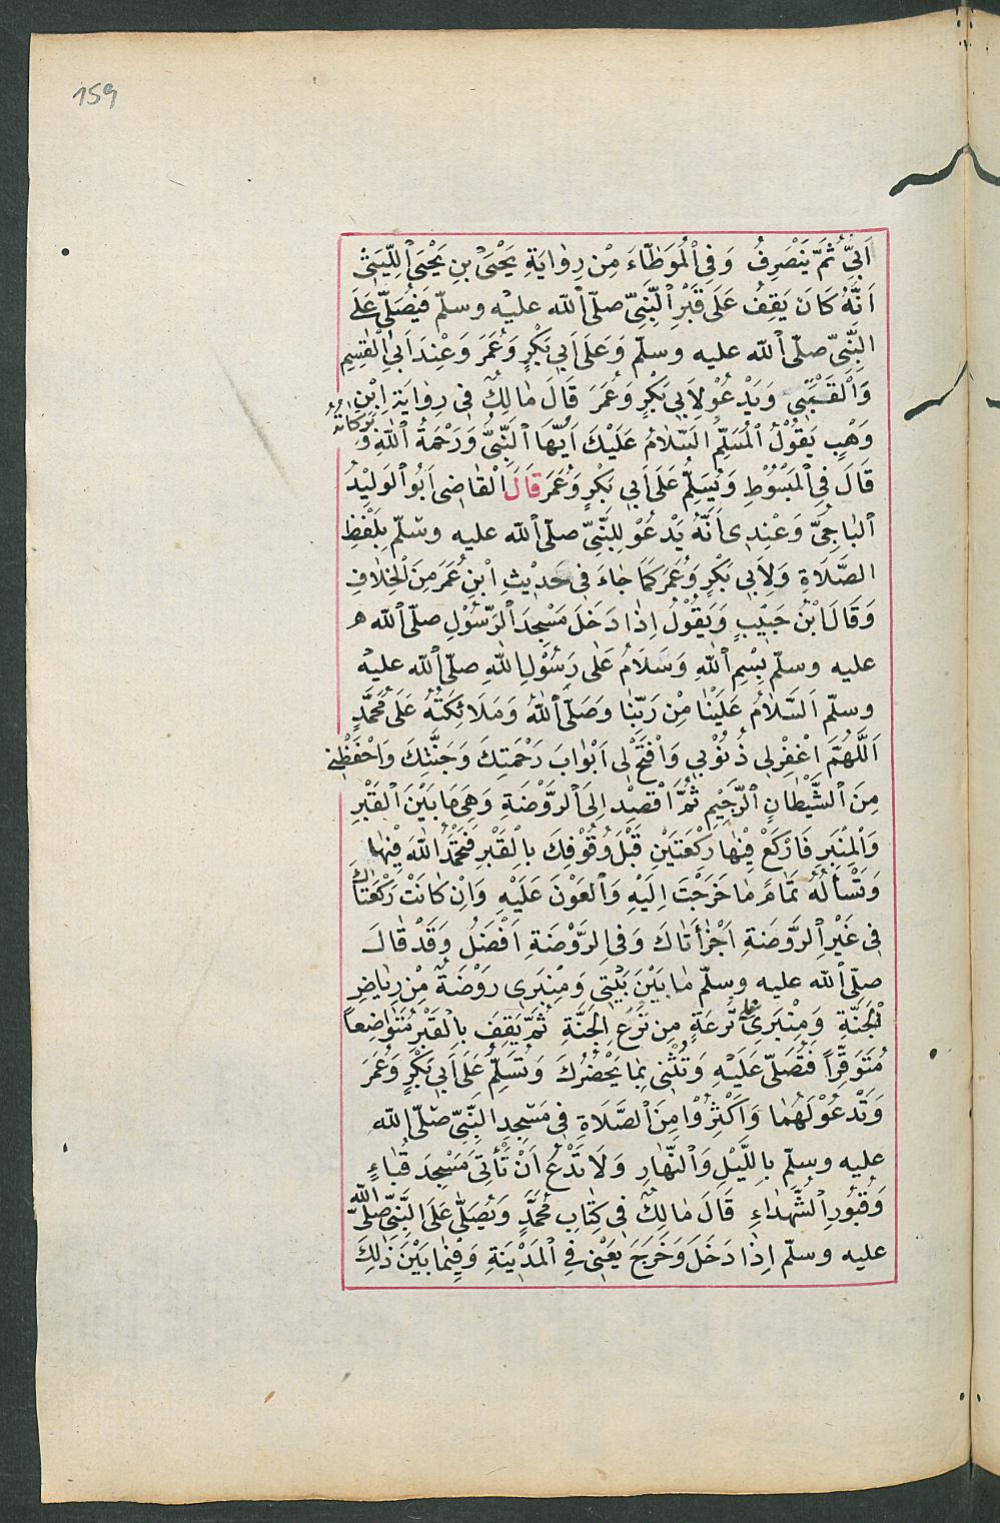 159
اَبِىّ ثُمَّ يَنْصَرِفُ وَفِى الْمُوَطَّاءَ مِنْ رِوَايَةِ يَحْيَى بْنِ يَحْيَى اللَّيْثِى
اَنَّهُ كَانَ يَقِفُ عَلَى قَبْرِ النَّبِىّ صلّى الله عليه وسلّم فَيُصَلّى عَلَى
النَّبِىّ صلّى الله عليه وسلّم وَعَلَى اَبِى بَكْرٍ وَعُمَرَ وَعِنْدَ اَبِى الْقٰسِمِ
وَالْقَعْنَبِى وَيَدْعُوْ لِاَبِى بَكْرٍ وَعُمَرَ قَالَ مَالِكٌ فى رِوَايَةِ اِبْنِ
وَهْبٍ يَقُوْلُ الْمُسَلِّمُ السَّلَامُ عَلَيْكَ اَيُّهَا النَّبِىُّ وَرَحْمَةُ اللهِ وَبَرَكَاتُهُ
قَالَ فِى الْمَبْسُوْطِ وَيُسَلِّمُ عَلَى اَبِى بَكْرٍ وَعُمَرَ قَالَ الْقَاضِى اَبُو الْوَلِيْدُ
الْبَاجِىُّ وَعِنْدِى اَنَّهُ يَدْعُوْ لِلنَّبِىّ صلّى الله عليه وسلّم بِلَفْظِ
الصَّلَاةِ وَلِاَبِى بَكْرٍ وَعُمَرَ كَمَا جَاءَ فى حَدِيْثِ ابْنِ عُمَرَ مِنَ الْخِلَافِ
وَقَالَ ابْنُ حَبِيْبٍ وَيَقُوْلُ اِذَا دَخَلَ مَسْجِدَ الرَّسُوْلِ صلّى الله
عليه وسلّم بِسْمِ اللهِ وَسَلَامٌ عَلَى رَسُوْلِ اللهِ صلّى الله عليه
وسلّم اَلسَّلَامُ عَلَيْنَا مِنْ رَبِّنَا وَصَلَّى اللهُ وَمَلَائِكَتُهُ عَلَى مُحَمَّدٍ
اَللّٰهُمَّ اغْفِرْلِى ذُنُوْبِى وَافْتَحْ لى اَبْوَابَ رَحْمَتِكَ وَجَنَّتِكَ وَاحْفَظْنِى
مِنَ الشَّيْطَانِ الرَّجِيْمِ ثُمَّ اقْصِدْ اِلَى الرَّوْضَةِ وَهِىَ مَا بَيْنَ الْقَبْرِ
وَالْمِنْبَرِ فَارْكَعْ فِيْهَا رَكْعَتَيْنِ قَبْلَ وُقُوْفِكَ بِالْقَبْرِ فَتَحْمَدُ اللهَ فِيْهَا
وَتَسْأَلُهُ تَمَامَ مَا خَرَجْتَ اِلَيْهِ وَالْعَوْنَ عَلَيْهِ وَاِنْ كَانَتْ رَكْعَتَاكَ
فى غَيْرِ الرَّوْضَةِ اَجْزَأَتَاكَ وَفى الرَّوْضَةِ اَفْضَلُ وَقَدْ قَالَ
صلّى الله عليه وسلّم مَا بَيْنَ بَيْتِى وَمِنْبَرِى رَوْضَةٌ مِنْ رِيَاضِ
الْجَنَّةِ وَمِنْبَرِى عَلَى تُرْعَةٍ مِن تُرَعِ الْجَنَّةِ ثُمَّ يَقِفَ بِالْقَبْرِ مُتَوَاضِعاً
مُتَوَقِّراً فَتُصَلّى عَلَيْهِ وَتُثْنِى بِمَا يَحْضُرُكَ وَتُسَلِّمُ عَلَى اَبِى بَكْرٍ وَعُمَرَ
وَتَدْعُوْ لَهُمَا وَاَكْثِرُوْا مِنَ الصَّلَاةِ فى مَسْجِدِ النَّبِىّ صلّى الله
عليه وسلّم بِاللَّيْلِ وَالنَّهَارِ وَلَا تَدْعُ اَنْ تَأْتِىَ مَسْجِدَ قُبَاءٍ
وَقُبُوْرِ الشُّهَدَاءِ قَالَ مَالِكٌ فى كِتَابِ مُحَمَّدٍ وَيُصَلّى عَلَى النَّبِىّ صلّى الله
عليه وسلّم اِذَا دَخَلَ وَخَرَجَ يَعْنِى فِى الْمَدِيْنَةِ وَفِيْمَا بَيْنَ ذٰلِكَ